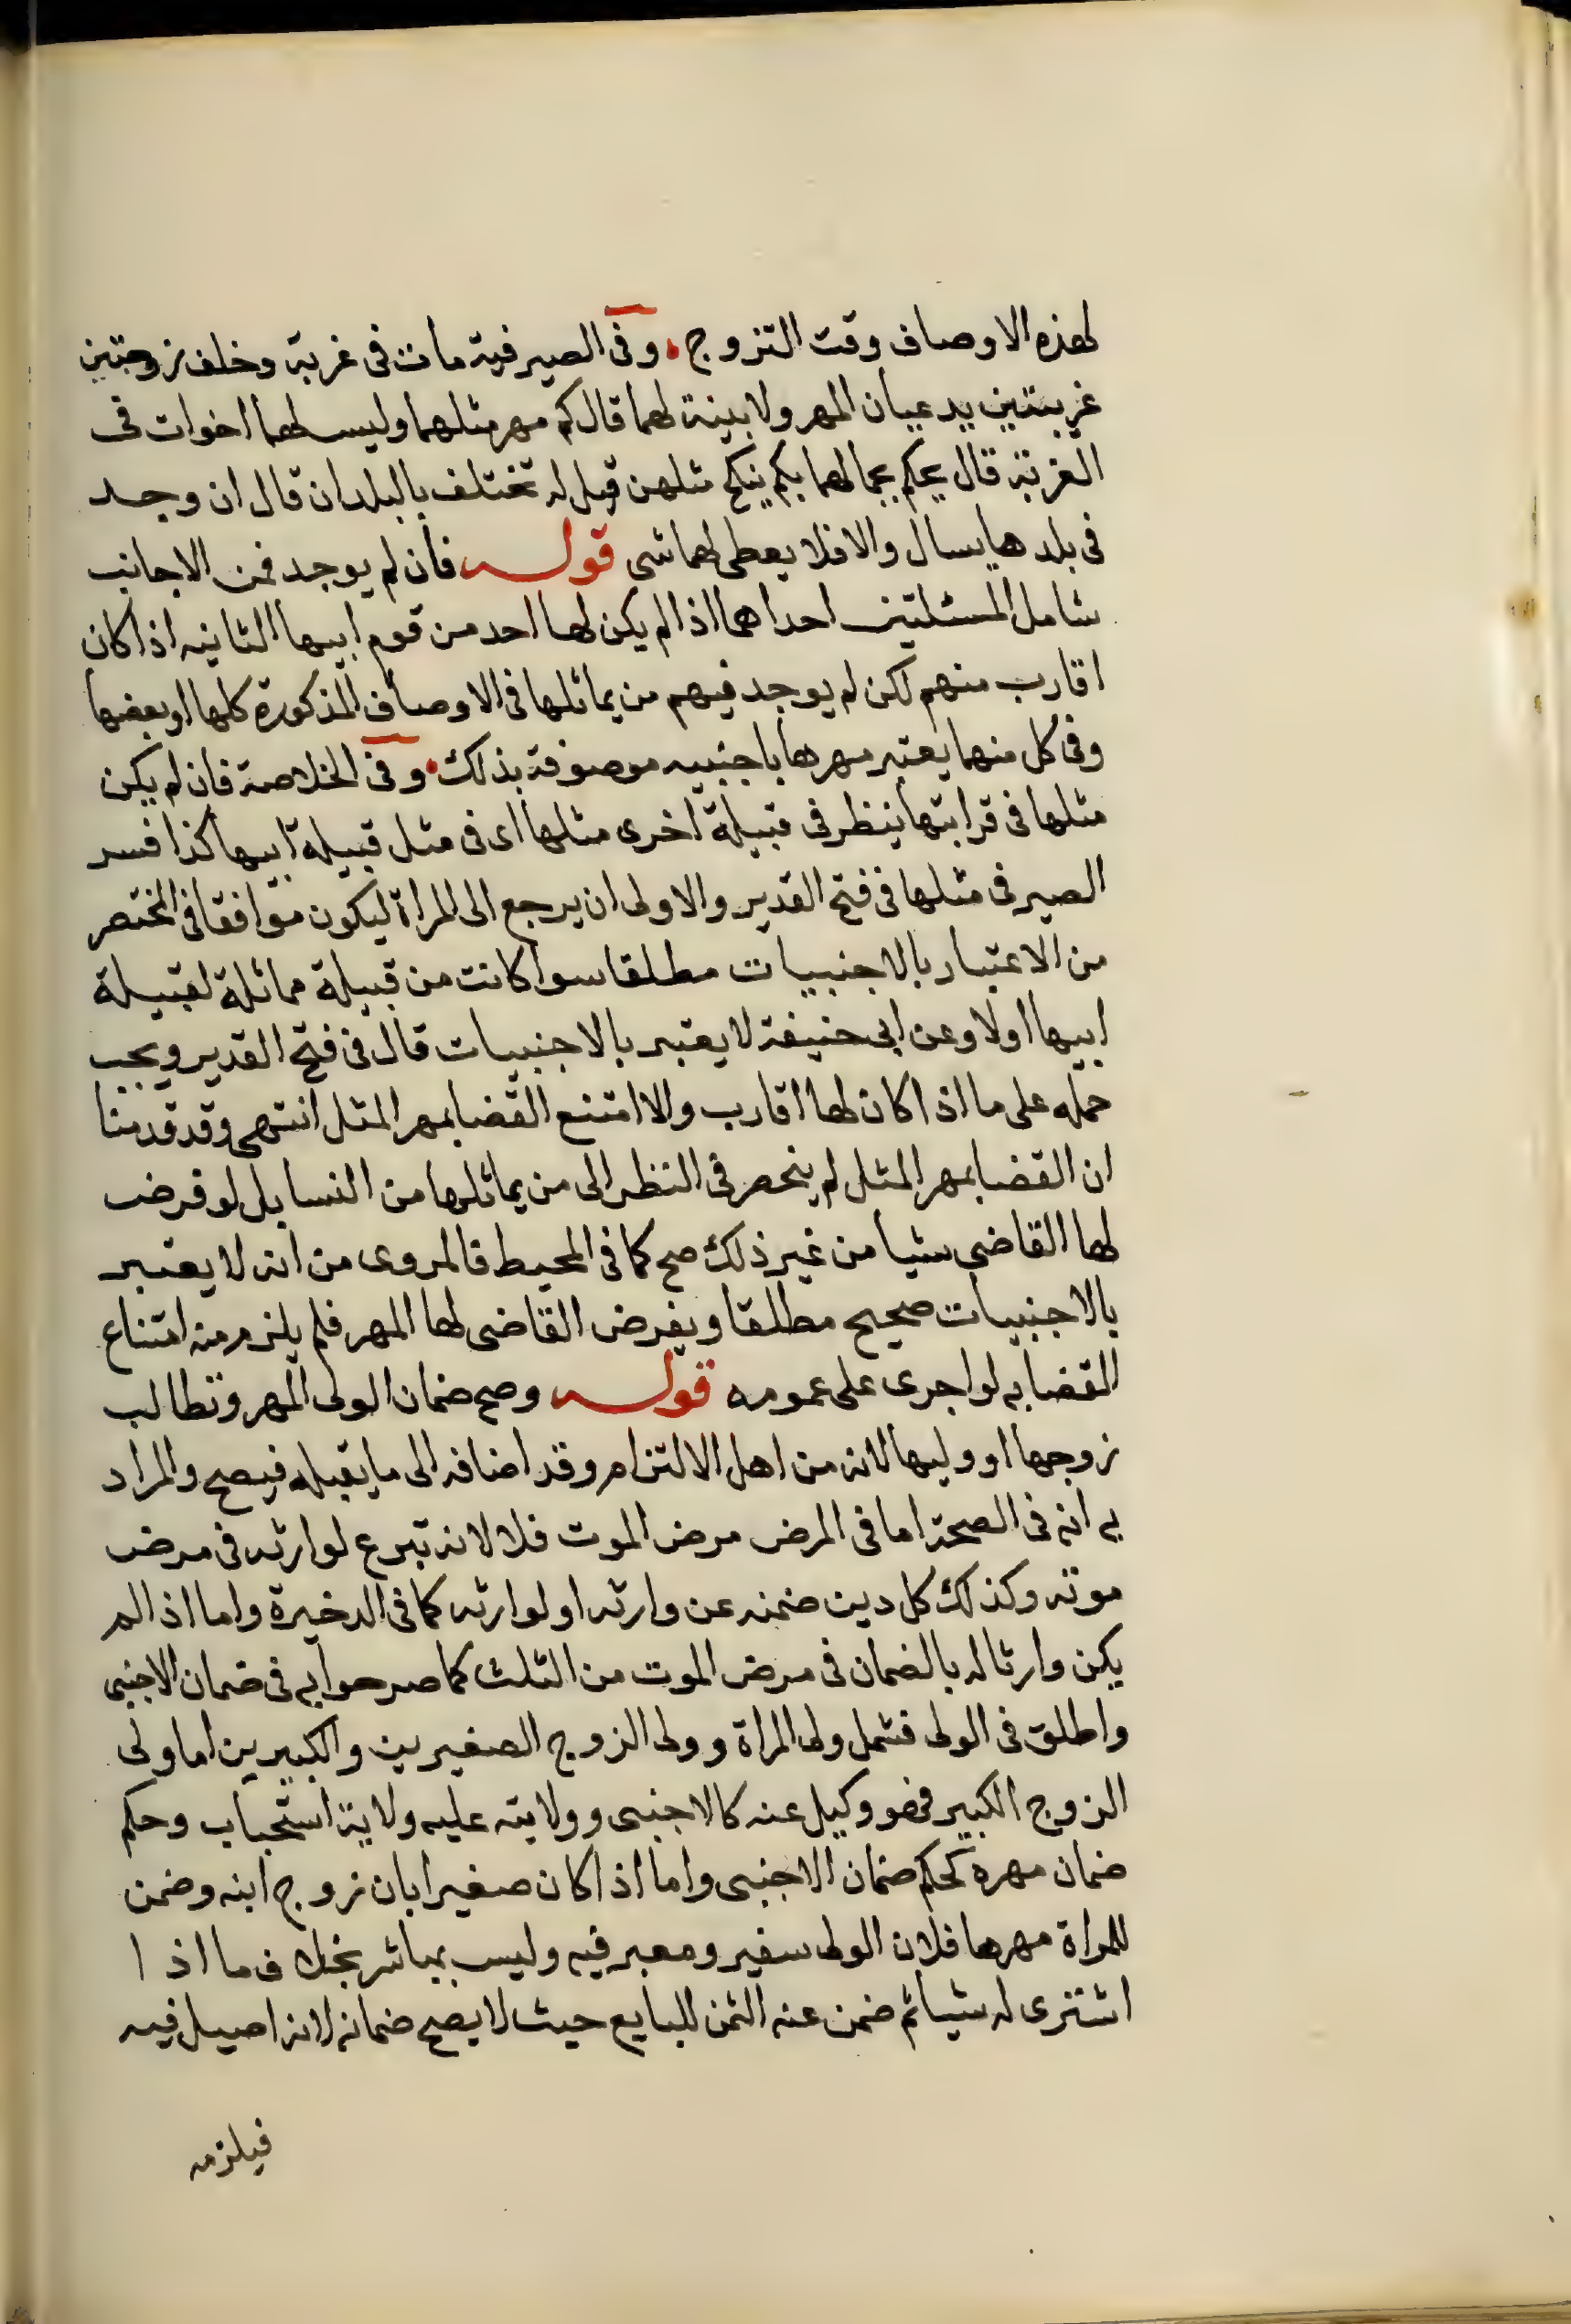 لهذه الاوصاف وقت التزوج وفى الصيرفية مات فى غربة وخلف زوجتين
غريبتين يدعيان المهر ولا بينة لهما قال كم مهر مثلهما وليس لهما اخوات فى
الغربة قال يحكم بجمالهما بكم ينكح مثلهن قيل له تختلف بالبلدان قال ان وجد
فى بلدهما يسال والا فلا يعطى لهما شى قوله فان لم يوجد فمن الاجانب
شامل المسئلتين احداهما اذا لم يكن لها احد من قوم ابيها الثانيه اذا كان
اقارب منهم لكن لم يوجد فيهم من يماثلها فى الاوصاف المذكورة كلها او بعضها
وفى كل منهما يعتبر مهرها باجنبيه موصوفة بذلك وفى الخلاصة فان لم يكن
مثلها فى قرابتها ينظر فى قبيلة اخرى مثلها اى فى مثل قبيلة ابيها كذا فسر
الصير فى مثلها فى فتح القدير والاولى ان يرجع الى المراة ليكون موافقا فى المختصر
من الاعتبار بالاجنبيات مطلقا سوا كانت من قبيلة مماثلة لقبيلة
ابيها اولا وعن ابى حنيفة لا يعتبر بالاجنبيات قال فى فتح القدير ويجب
حمله على ما اذا كان لها اقارب والا امتنع القضا بمهر المثل انتهى وقد قدمنا
ان القضا بمهر المثل لم ينحصر فى النظر الى من يماثلها من النسا بل لو فرض
لها القاضى شيا من غير ذلك صح كما فى المحيط فالمروى من انه لا يعتبر
بالاجنبيات صحيح مطلقا ويفرض القاضى لها المهر فلم يلزم منه امتناع
القضا به لو اجرى على عمومه قوله وصح ضمان الولى المهر وتطالب
زوجها او وليها لانه من اهل الالتزام وقد اضافه الى ما يقبله فيصح والمراد
به انه فى الصحة اما فى المرض مرض الموت فلا لانه تبرع لوارثه فى مرض
موته وكذلك كل دين ضمنه عن وارثه او لوارثه كما فى الدخيرة واما اذا لم
يكن وارثا له بالضمان فى مرض الموت من الثلث كما صرحوا به فى ضمان الاجنبى
واطلق فى الولى فشمل ولى المراة وولى الزوج الصغيرين والكبيرين اما ولى
الزوج الكبير فهو وكيل عنه كالاجنبى وولايته عليه ولاية استحباب وحكم
ضمان مهره كحكم ضمان الاجنبى واما اذا كان صغيرا بان زوج ابنه وضمن
للمراة مهرها فلان الولى سفير ومعبر فيه وليس بمباشر بخلاف ما اذا
اشترى له شيا ثم ضمن عنه الثمن للبايع حيث لا يصح ضمانه لانه اصيل فيه
فيلزمه